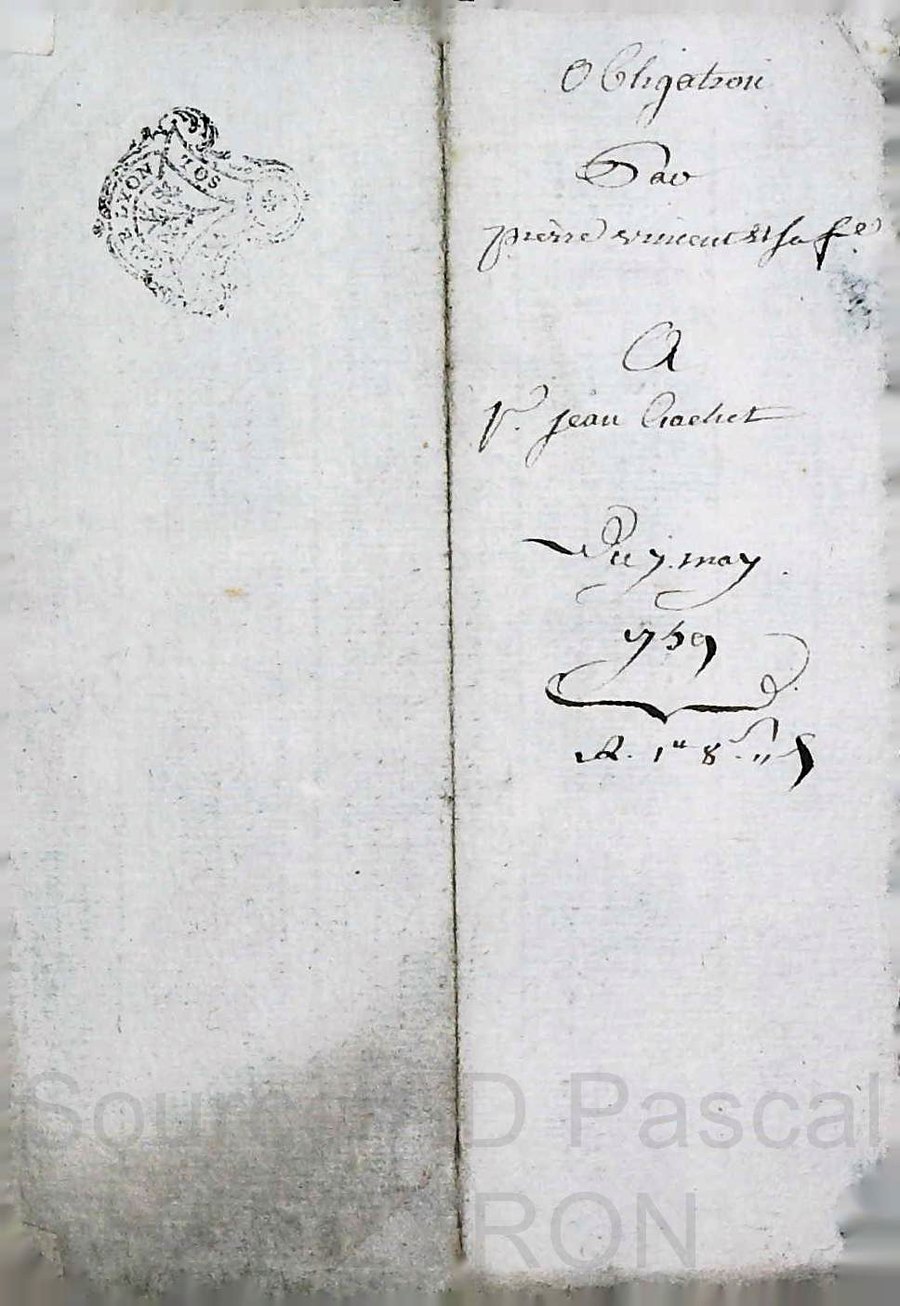 LYON
SOL
Obligation
Par
pierre vincent et sa fe
A
Sr. jean
Du 7 may
1759
R. 1# 8s
Sour D Pascal
RON